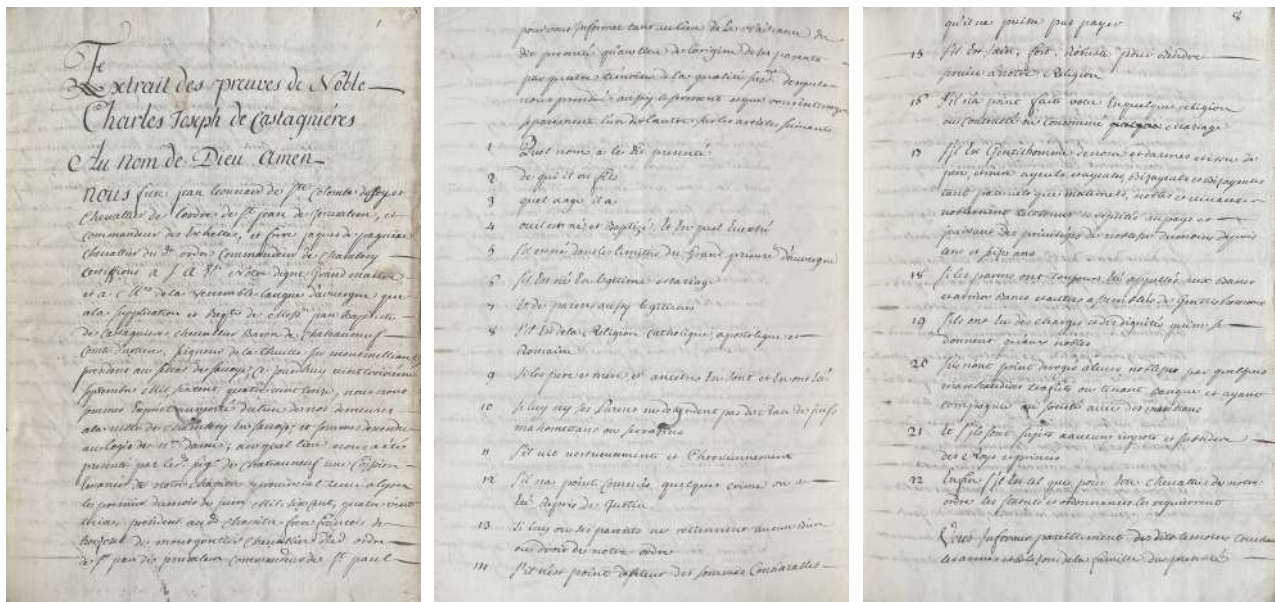 1
Extrait des preuves de Noble
Charles Joseph de Castagnières
Au nom de Dieu Amen
nous frere jean leonnard de Ste Colombe
Chevallier de lordre de St jean de Jerusalem, et
commandeur des Eschelles, et frere jaques de
chevallier du dt ordre commandeur de Chambery
certiffions à S A Notre digne grand maitre
et a de la venerable langue dauvergne que
ala supplication et Reqte de jean Baptiste
de Castagnieres chevallier Baron de Chateauneuf
seigneur de la Thuille, sur montmellian
president au senat de savoye, ce jourdhuy vient troisieme
septembre Mil sixcent quatre vint nous nous
sommes de nos demeures
ala ville de Chambery En savoye et sommes
au logis de ne dame, auquel lieu nous a été
presenté par ledt seigr de Chateauneuf une Comission
de notre Chapitre provincial tenu a lyon
le premier du mois de juin mil sixcent, quatre vint
president audt chapitre frere françois de
de Chevallier dud ordre
de St jean de jerusalem commandeur de St paul
pour vous informer tant au lieu de la Naissance du
dit presenté qu'au lieu de l'origine de ses parents
par quatre témoins de la qualité susd.
le serment et que vous interrogerez
separement l'un de l'autre sur les articles suivants
1 Quel nom a le dit presenté
2 de qui il est fils
3 quel aage il a
4 ou il est né et Baptizé, Et En quel Eveché
5 s'il est né dans les limittes du Grand prieuré d'auvergne
6 s'il Est né En legitime mariage
7 Et de parens aussy legitimes
8 S'il Est de la Religion Catholique, apostolique et
Romaine
9 si les pere et mere et ancètres En sont et En ont été
10 Si luy ny ses Parens ne descendent pas de race de juifs
mahometans ou sarrasins
11 S'il vit vertueusement et Chretiennement
12 S'il n'a point Commis quelques crime ou a
été Repris de Justice
13 si luy ou ses parents ne retiennent aucun Bien
ou droit de notre ordre
14 s'il n'est point debiteur des sommes Considerables
8
qu'il ne puisse pas payer
15 S'il Est sain, fort, Robuste pour rendre
service a notre Religion
16 S'il n'a point fait voeu En quelque religion
ou contracté ou consommé mariage
17 S'il Est Gentilhomme de nom et d'armes et issu de
pere, mere ayeuls et ayeules, bisayeuls et bisayeules
tant paternels que maternels, nobles et vivans
noblement et reputés au pays et
jouissans des privileges de noblesse du moins depuis
cent et seize ans
18 Si les parens ont toujours été appellés aux Bancs
et arriere Bancs et autres assemblées de Gentilshommes
19 S'ils ont Eu des charges et des dignités qui ne se
donnent qu'aux nobles
20 s'ils n'ont point derogé a leur noblesse par quelques
marchandises traffics ou tenant Banque et ayant
compagnie ou societé avec des marchans
21 Et s'ils sont sujets a aucuns impots et subsides
des Roys et princes
22 Enfin s'il est tel que pour Etre chevallier de notre
ordre les statuts et ordonnances le requierent
Vous Informer pareillement des dits temoins touchant
les armes de la famille du presenté